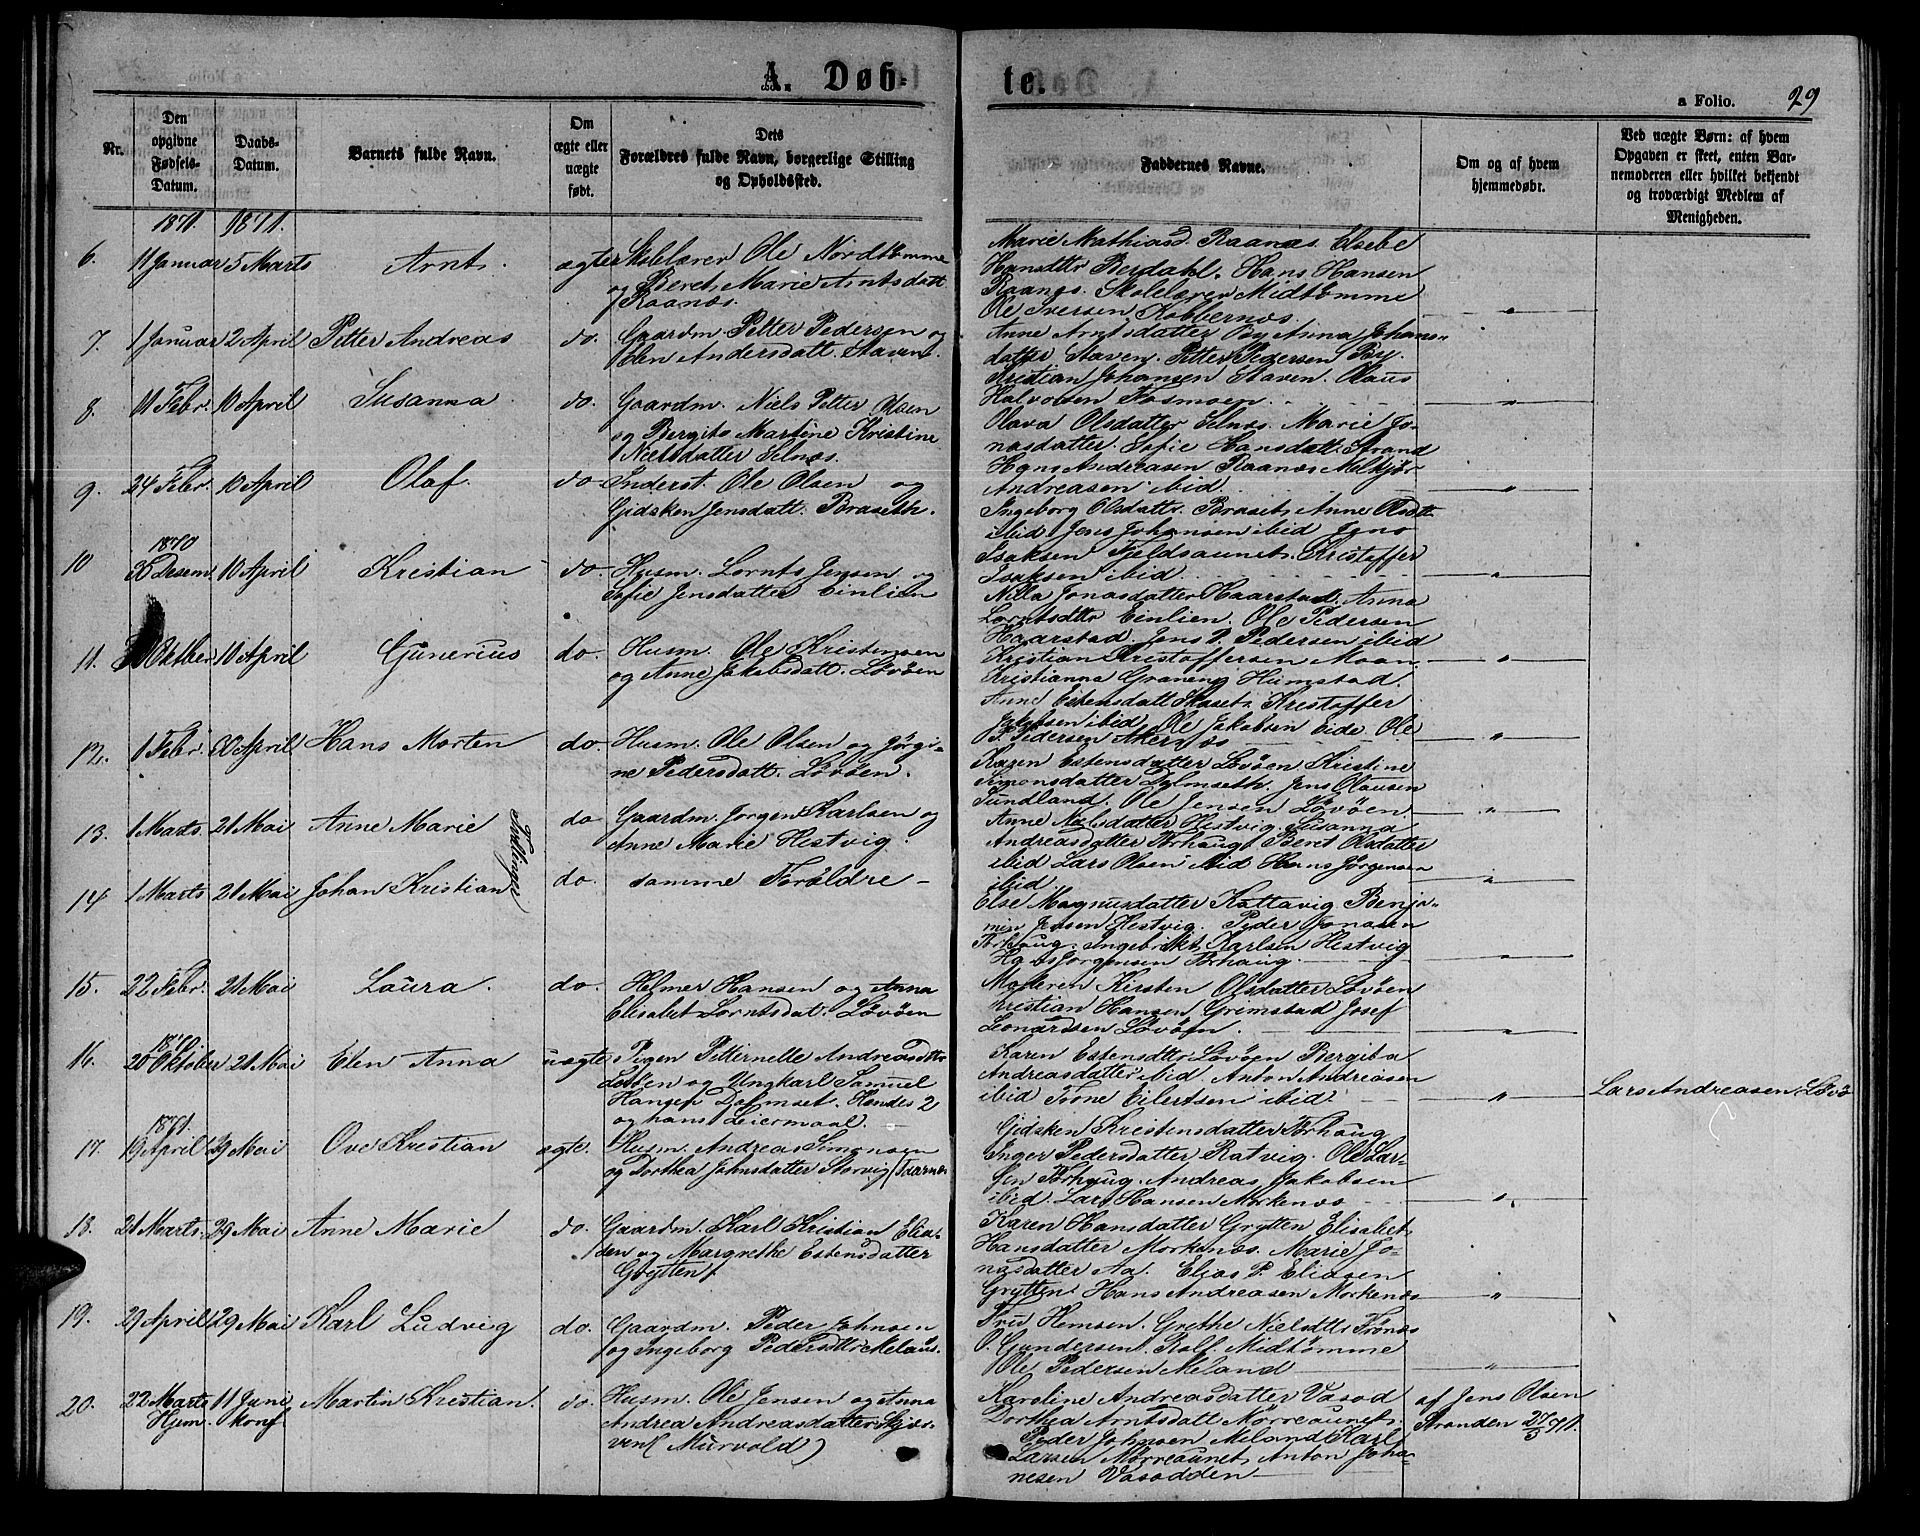 A. Døbte.
a Folio. 29
Nr.
Den opgivne Fødsels-Datum.
Daabs-Datum.
Barnets fulde Navn.
Om ægte eller uægte født.
Dets Forældres fulde Navn, borgerlige Stilling og Opholdssted.
Faddernes Navne.
Om og af hvem hjemmedøbt.
Ved uægte Børn: af hvem Opgaven er skeet, enten Barnemoderen eller hvilket bekjendt og troværdigt Medlem af Menigheden.
1871. 1871.
6. 11 Januar 5 Marts Arnt. ægte Skolelærer Ole Nordtømme
og Beret Marie Arntsdatt
Raanæs.
Marie Mathiasd. Raanæs. Elsebe
Hansdttr Berdahl. Hans Hansen
Raanæs. Skolelærer Midtømme
Ole Iversen Kobbernæs. "
7. 1 Januar 2 April Petter Andreas do. Gaardm. Petter Pedersen og
Elen Andersdatt. Staven.
Anne Arntsdatter By. Anna Johans-
datter Staven. Petter Pedersen By.
Kristian Johansen Staven. Olaus
Halvorsen Fosmoen. "
8. 11 Febr. 10 April Susanna do. Gaardm. Niels Petter Olsen
og Bergite Martine Kristine
Nielsdatter Selnæs.
Olava Olsdatter Selnæs. Marie Jo-
nasdatter. Sofie Hansdatt. Strand
Hans Andreasen Raanæs Melkjør
Andreasen ibid. "
9. 24 Febr. 10 April Olaf. do Inderst. Ole Olsen og
Gidsken Jensdatt. Braseth.
Ingeborg Olsdattr. Braset. Anne Olsdttr
ibid Jens Johansen ibid Jens
Isaksen Fjeldsaunet. Kristoffer
Isaksen ibid. "
1870
10 Desem 10 April Kristian do. Husm. Lornts Jensen og
Sofie Jensdatter Einlien
Nilla Jonasdatter Haarstad. Anna
Lorntsdttr Einlien. Ole Pedersen
Haarstad. Jens P. Pedersen ibid
11. Oktber 10 April Gunerius do. Husm. Ole Kristensen
og Anne Jakobsdatt. Løvøen
Kristian Kristoffersen Moan "
Kristianna Graneng Humstad.
Anne Estensdatt Skaset. Kristoffer
Jakobsen ibid Ole Jakobsen Eide. Ole
P. Pedersen Akernæs "
12. 1 Febr. April Hans Morten do. Husm. Ole Olsen og Jørgi-
ne Pedersdatt. Løvøen.
Karen Estensdatter Løvøen Kristine
Simonsdatter Dalmseth. Jens Olausen
Sundland. Ole Jensen Løvøen. "
13. 1 Marts. 21 Mai Anne Marie do Gaardm. Jørgen Karlsen og
Anne Marie Hestvig.
Tvillinger
Anne Nielsdatter Hestvig. Susanna
Andreasdatter Forhaug. Beret Olsdatter
ibid Lars Olsen ibid Hans Jørgensen
ibid. "
14 1 Marts 21 Mai Johan Kristian do. samme Forældre -
Else Magnusdatter Kattavig. Benja-
min Jensen Hestvig. Peder Jonasen
Forhaug. Ingebrikt Karlsen Hestvig
Hans Jørgensen Forhaug. "
15. 22 Febr. 21 Mai Laura. do. Helmer Hansen og Anna
Elisabet Lorntsdat. Løvøen
Moderen Kirsten Olsdatter Løvøen
Kristian Hansen Gremstad Josef
Leonardsen Løvøen. "
1870.
16. 20 Oktober 21 Mai Elen Anna uægte Pigen Petternelle Andreasdttr
Løvøen og Ungkarl Samuel
Hansen Dalmset. Hendes 2
og hans Leiermaal.
Karen Estensdttr Løvøen Bergitha
Andreasdatter ibid. Anton Andreasen
ibid Trone Eilertsen ibid " Lars Andreasen Løvø
1871.
17. 19 April 29 Mai Ove Kristian ægte. Husm. Andreas Simonsen
og Dorthea Johnsdatter Storvig
Gidsken Kristensdatter Forhaug
Inger Pedersdatter Ratvig. Ole Lar-
sen Forhaug. Andreas Jakobsen
ibid. Lars Hansen Morkenæs "
18. 21 Marts. 29 Mai Anne Marie do. Gaardm. Karl Kristian Elia-
sen og Margrethe Estensdatter
Grytten
Karen Hansdatter Grytten Elisabet
Hansdatter Morkenæs. Marie Jo-
nasdatter Aa. Elias P. Eliasen
Grytten. Hans Andreasen Morkenæs "
19. 29 April 29 Mai Karl Ludvig do. Gaardm. Peder Johnsen
og Ingeborg Pedersdttr Melan.
Fru Hemsen. Grethe Nielsdttr Frønæs
O. Gundersen. Rolf Midtømme
Ole Pedersen Meland "
20. 22 Marts 11 Juni Martin Kristian. do. Husm. Ole Jensen og Anna
Hjem konf.
Andrea Andreasdatter Skjær-
ven (Murvold)
Karoline Andreasdatter Vasod
Dorthea Arntsdatt Mørreaunet.
Peder Johnsen Meland Karl
Larsen Mørreaunet. Anton Joha-
nesen Vasodden
af Jens Olsen
Stranden 27/3 71.